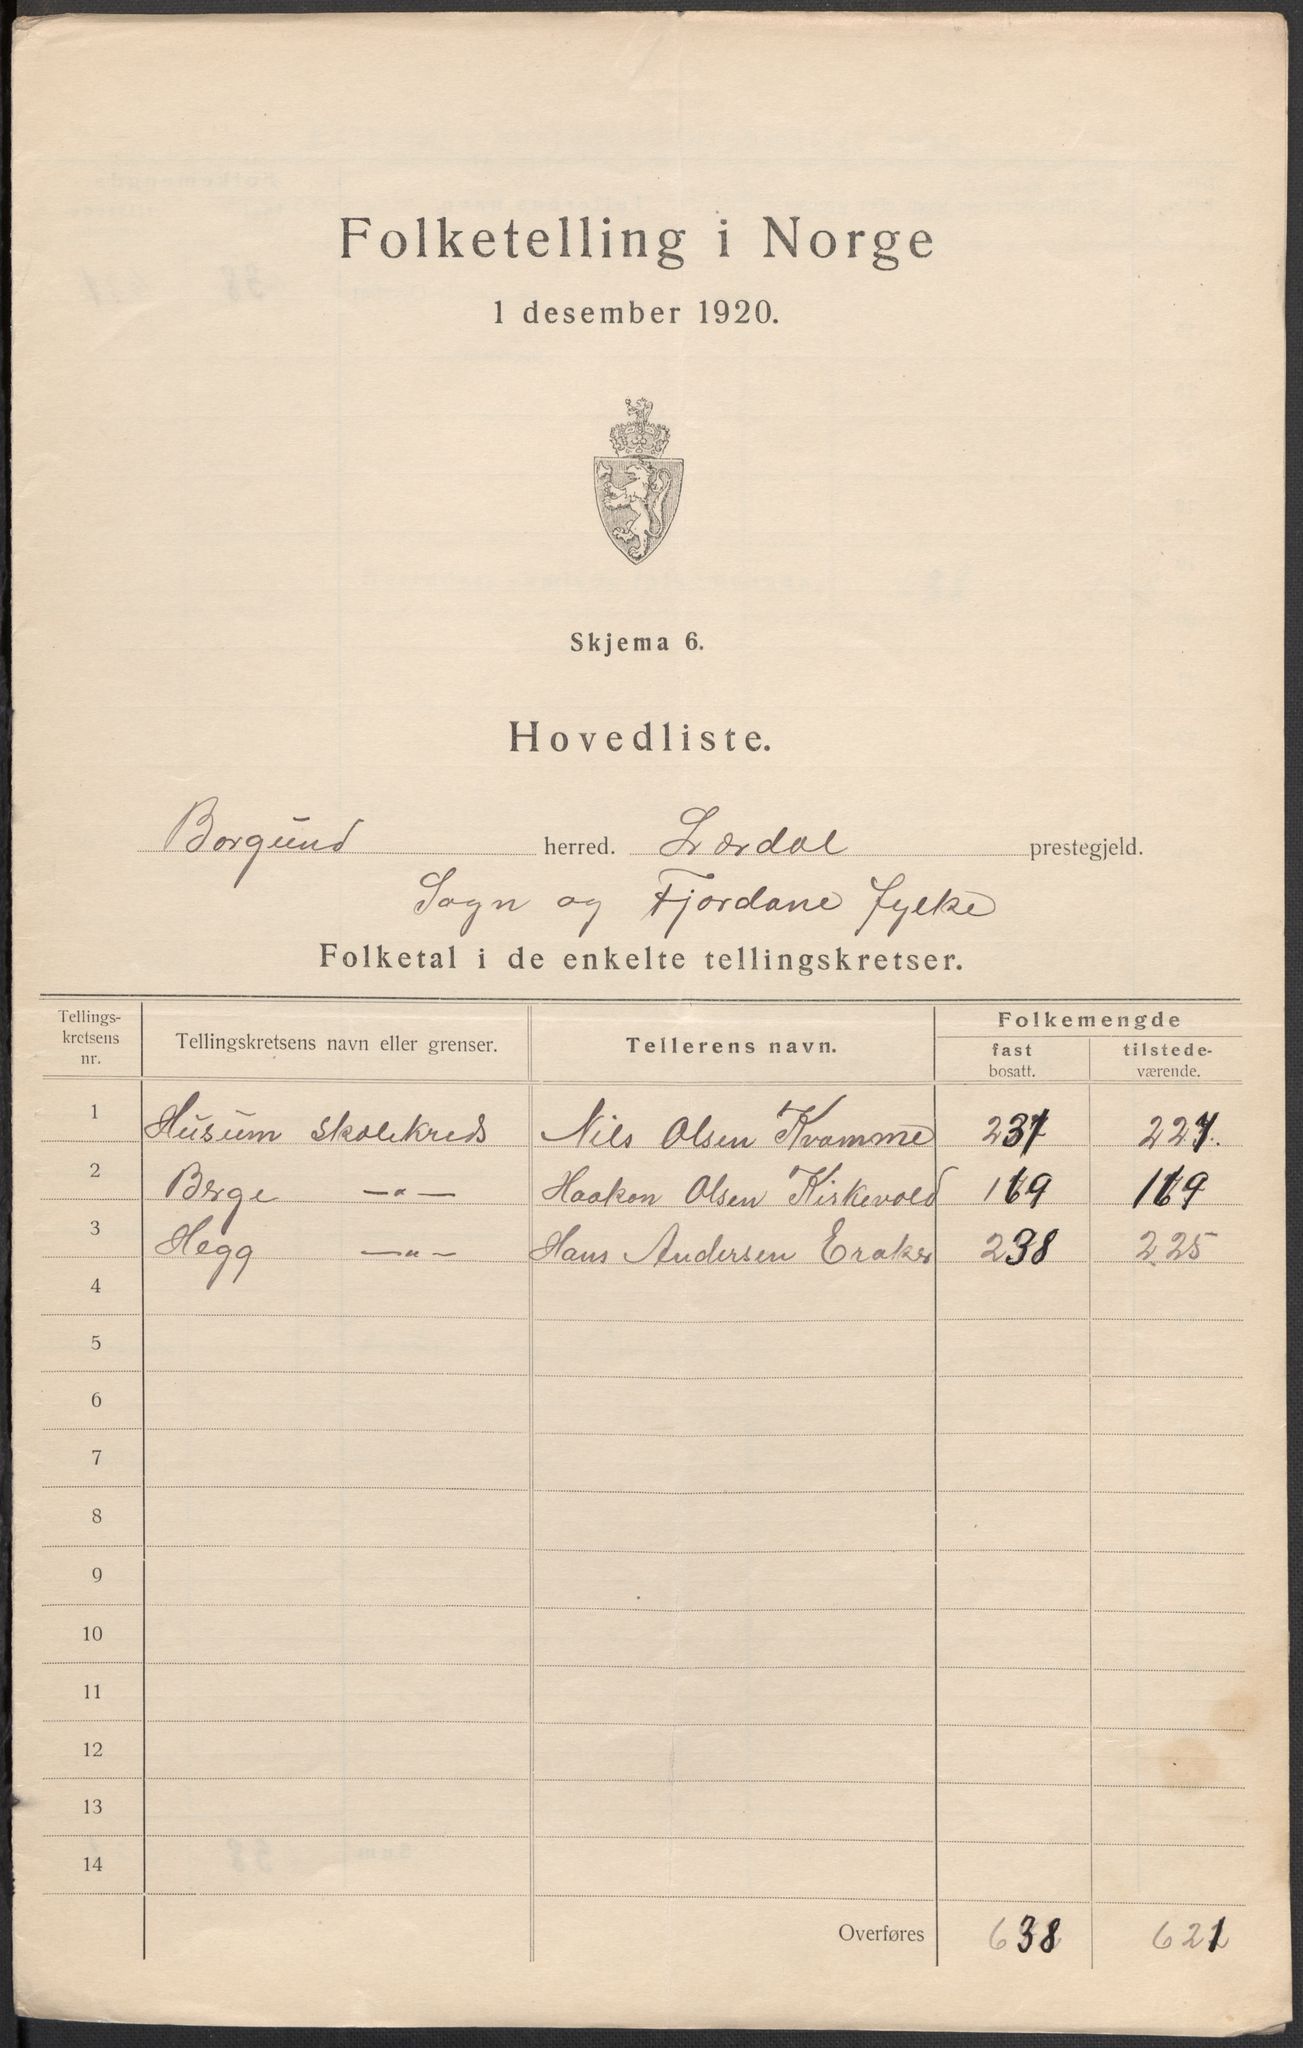 Folketelling i Norge
1 desember 1920.
Skjema 6.
Hovedliste.
Borgund herred. Lærdal prestegjeld.
Sogn og Fjordane fylke
Folketal i de enkelte tellingskretser.
Tellings-kretsens nr. Tellingskretsens navn eller grenser. Tellerens navn. Folkemengde
fast bosatt. tilstede-værende.
1 Husum skolekreds Nils Olsen Kvamme 231 227.
2 Berge —〃— Haakon Olsen Kirkevold 169 169
3 Hegg —〃— Hans Andersen Eraker 238 225
4
5
6
7
8
9
10
11
12
13
14
Overføres 638 621